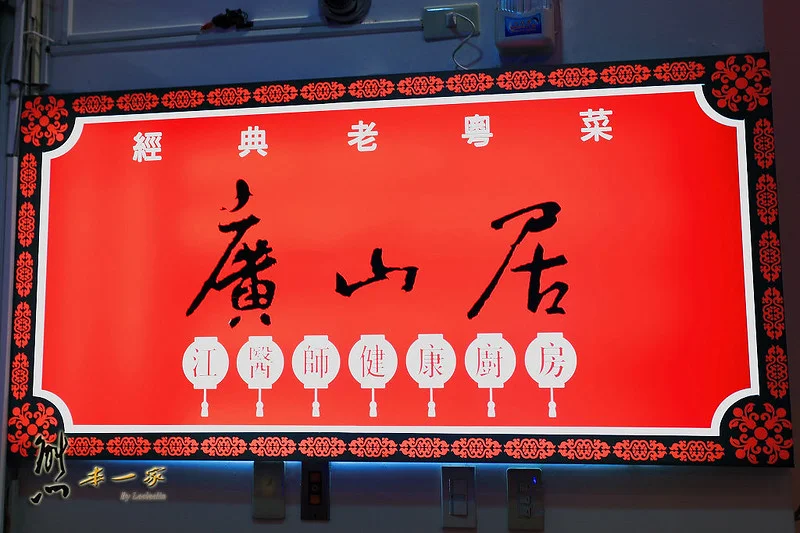 經典老粵菜
廣山居
江醫師健康廚房
By Leelealin